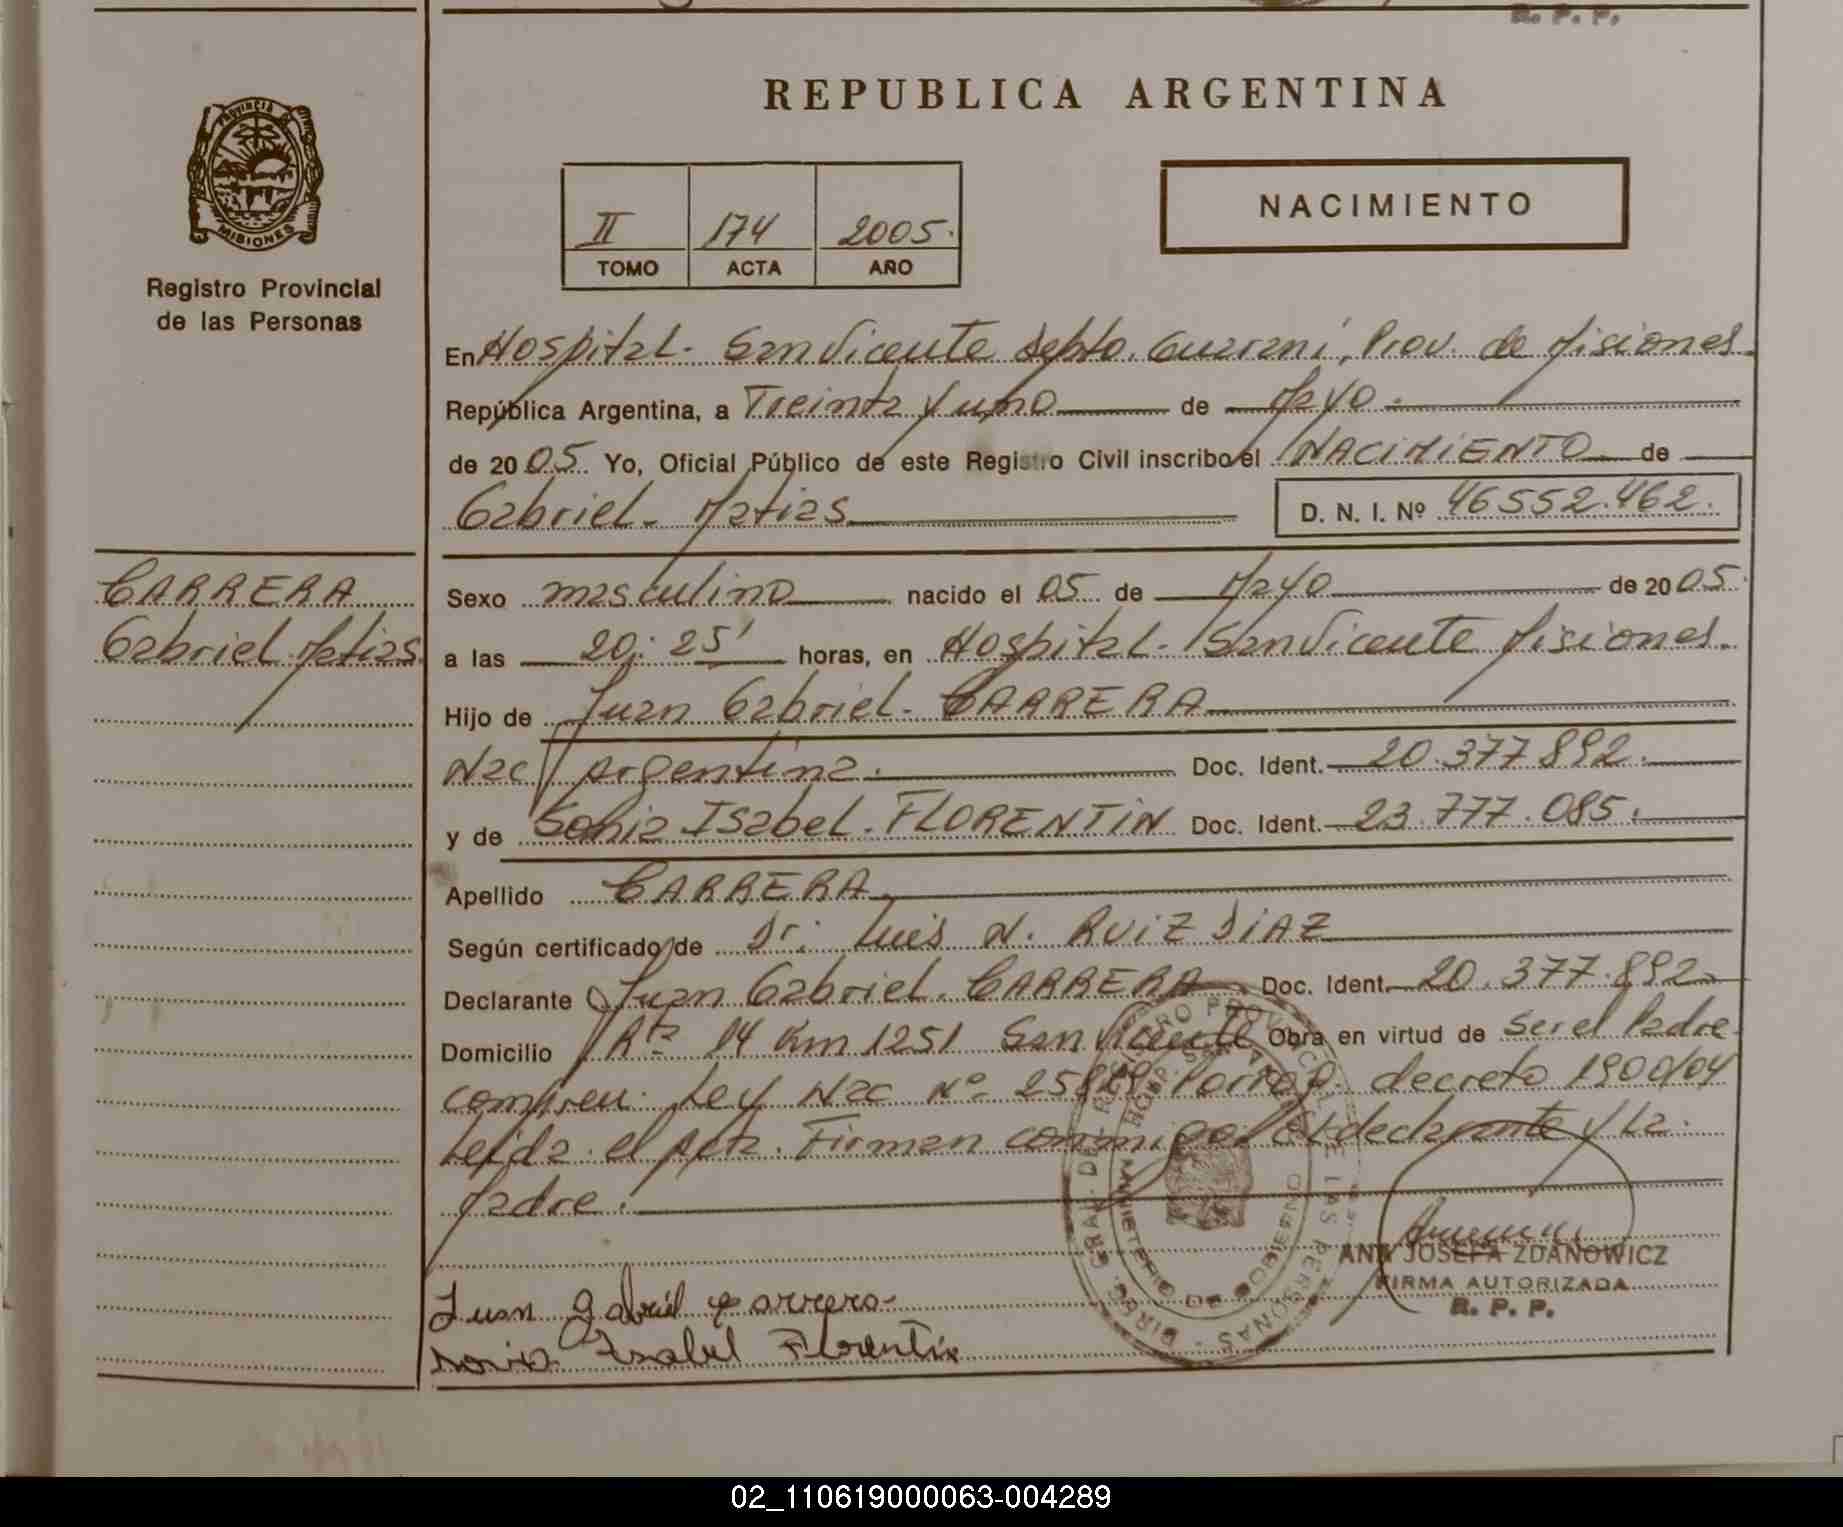 R. P. P.
REPUBLICA ARGENTINA
PROVINCIA DE
MISIONES
Registro Provincial
de las Personas
NACIMIENTO
II 174 2005.
TOMO ACTA AÑO
En Hospital. San Vicente Depto. Guaraní, Prov. de Misiones
República Argentina, a Treinta y uno de Mayo.
de 2005. Yo, Oficial Público de este Registro Civil inscribo el NACIMIENTO de
Gabriel. Matias D. N. I. Nº 46552.462.
CARRERA
Gabriel Matias
Sexo masculino nacido el 05 de Mayo de 2005.
a las 20:25' horas, en Hospital. San Vicente Misiones.
Hijo de Juan Gabriel. CARRERA
Nac/ Argentina. Doc. Ident. 20.377892.
y de Sonia Isabel. FLORENTIN Doc. Ident. 23.777.085.
Apellido CARRERA
Según certificado de Dr: Luis N. RUIZ DIAZ
Declarante Juan Gabriel. CARRERA Doc. Ident. 20.377.892
Domicilio Rta 14 Km 1251 San Vicente Obra en virtud de Ser el Padre
Ley Nac Nº decreto 1900/04
Leida el Acta. Firman conmigo el declarante y La
Madre.
Juan gabriel carrera
sonia Isabel Florentin
DIREC. GRAL. DEL REGISTRO PROVINCIAL DE LAS PERSONAS
MINISTERIO DE GOBIERNO
ANA JOSEFA ZDANOWICZ
FIRMA AUTORIZADA
R. P. P.
02_110619000063-004289